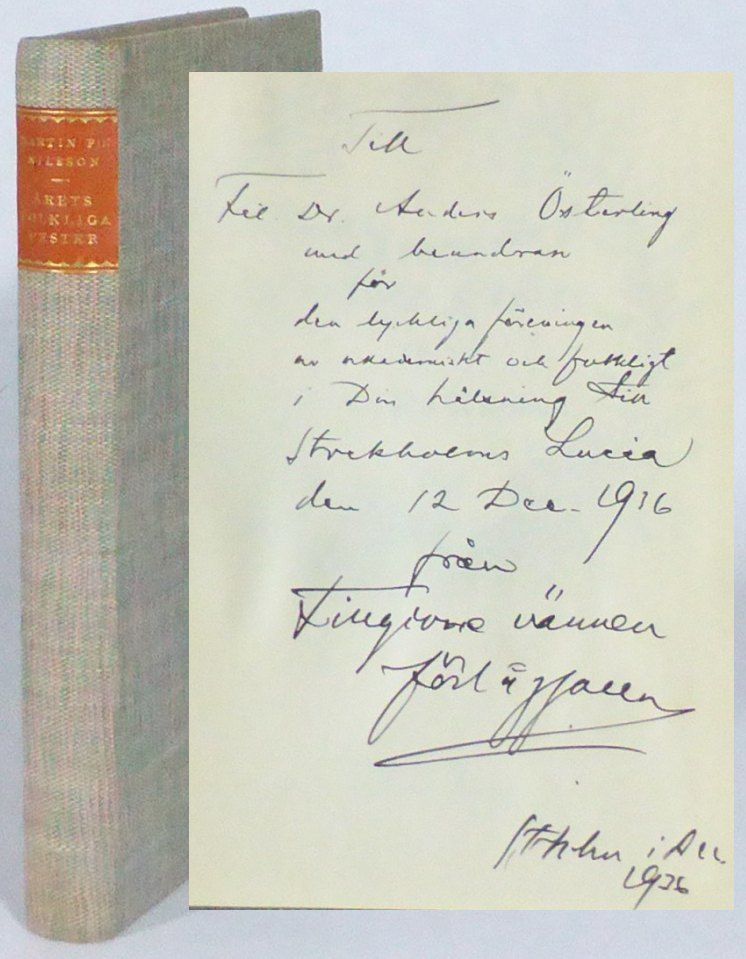 MARTIN P:N
NILSSON
ÅRETS
FOLKLIGA
FESTER
Till
Till Dr. Anders Österling
med beundran
för
den lyckliga föreningen
av akademiskt och folkligt
i Din hälsning till
Stockholms Lucia
den 12 Dec. 1936
från
Tillgivne vännen
förläggaren
Sthlm i Dec.
1936